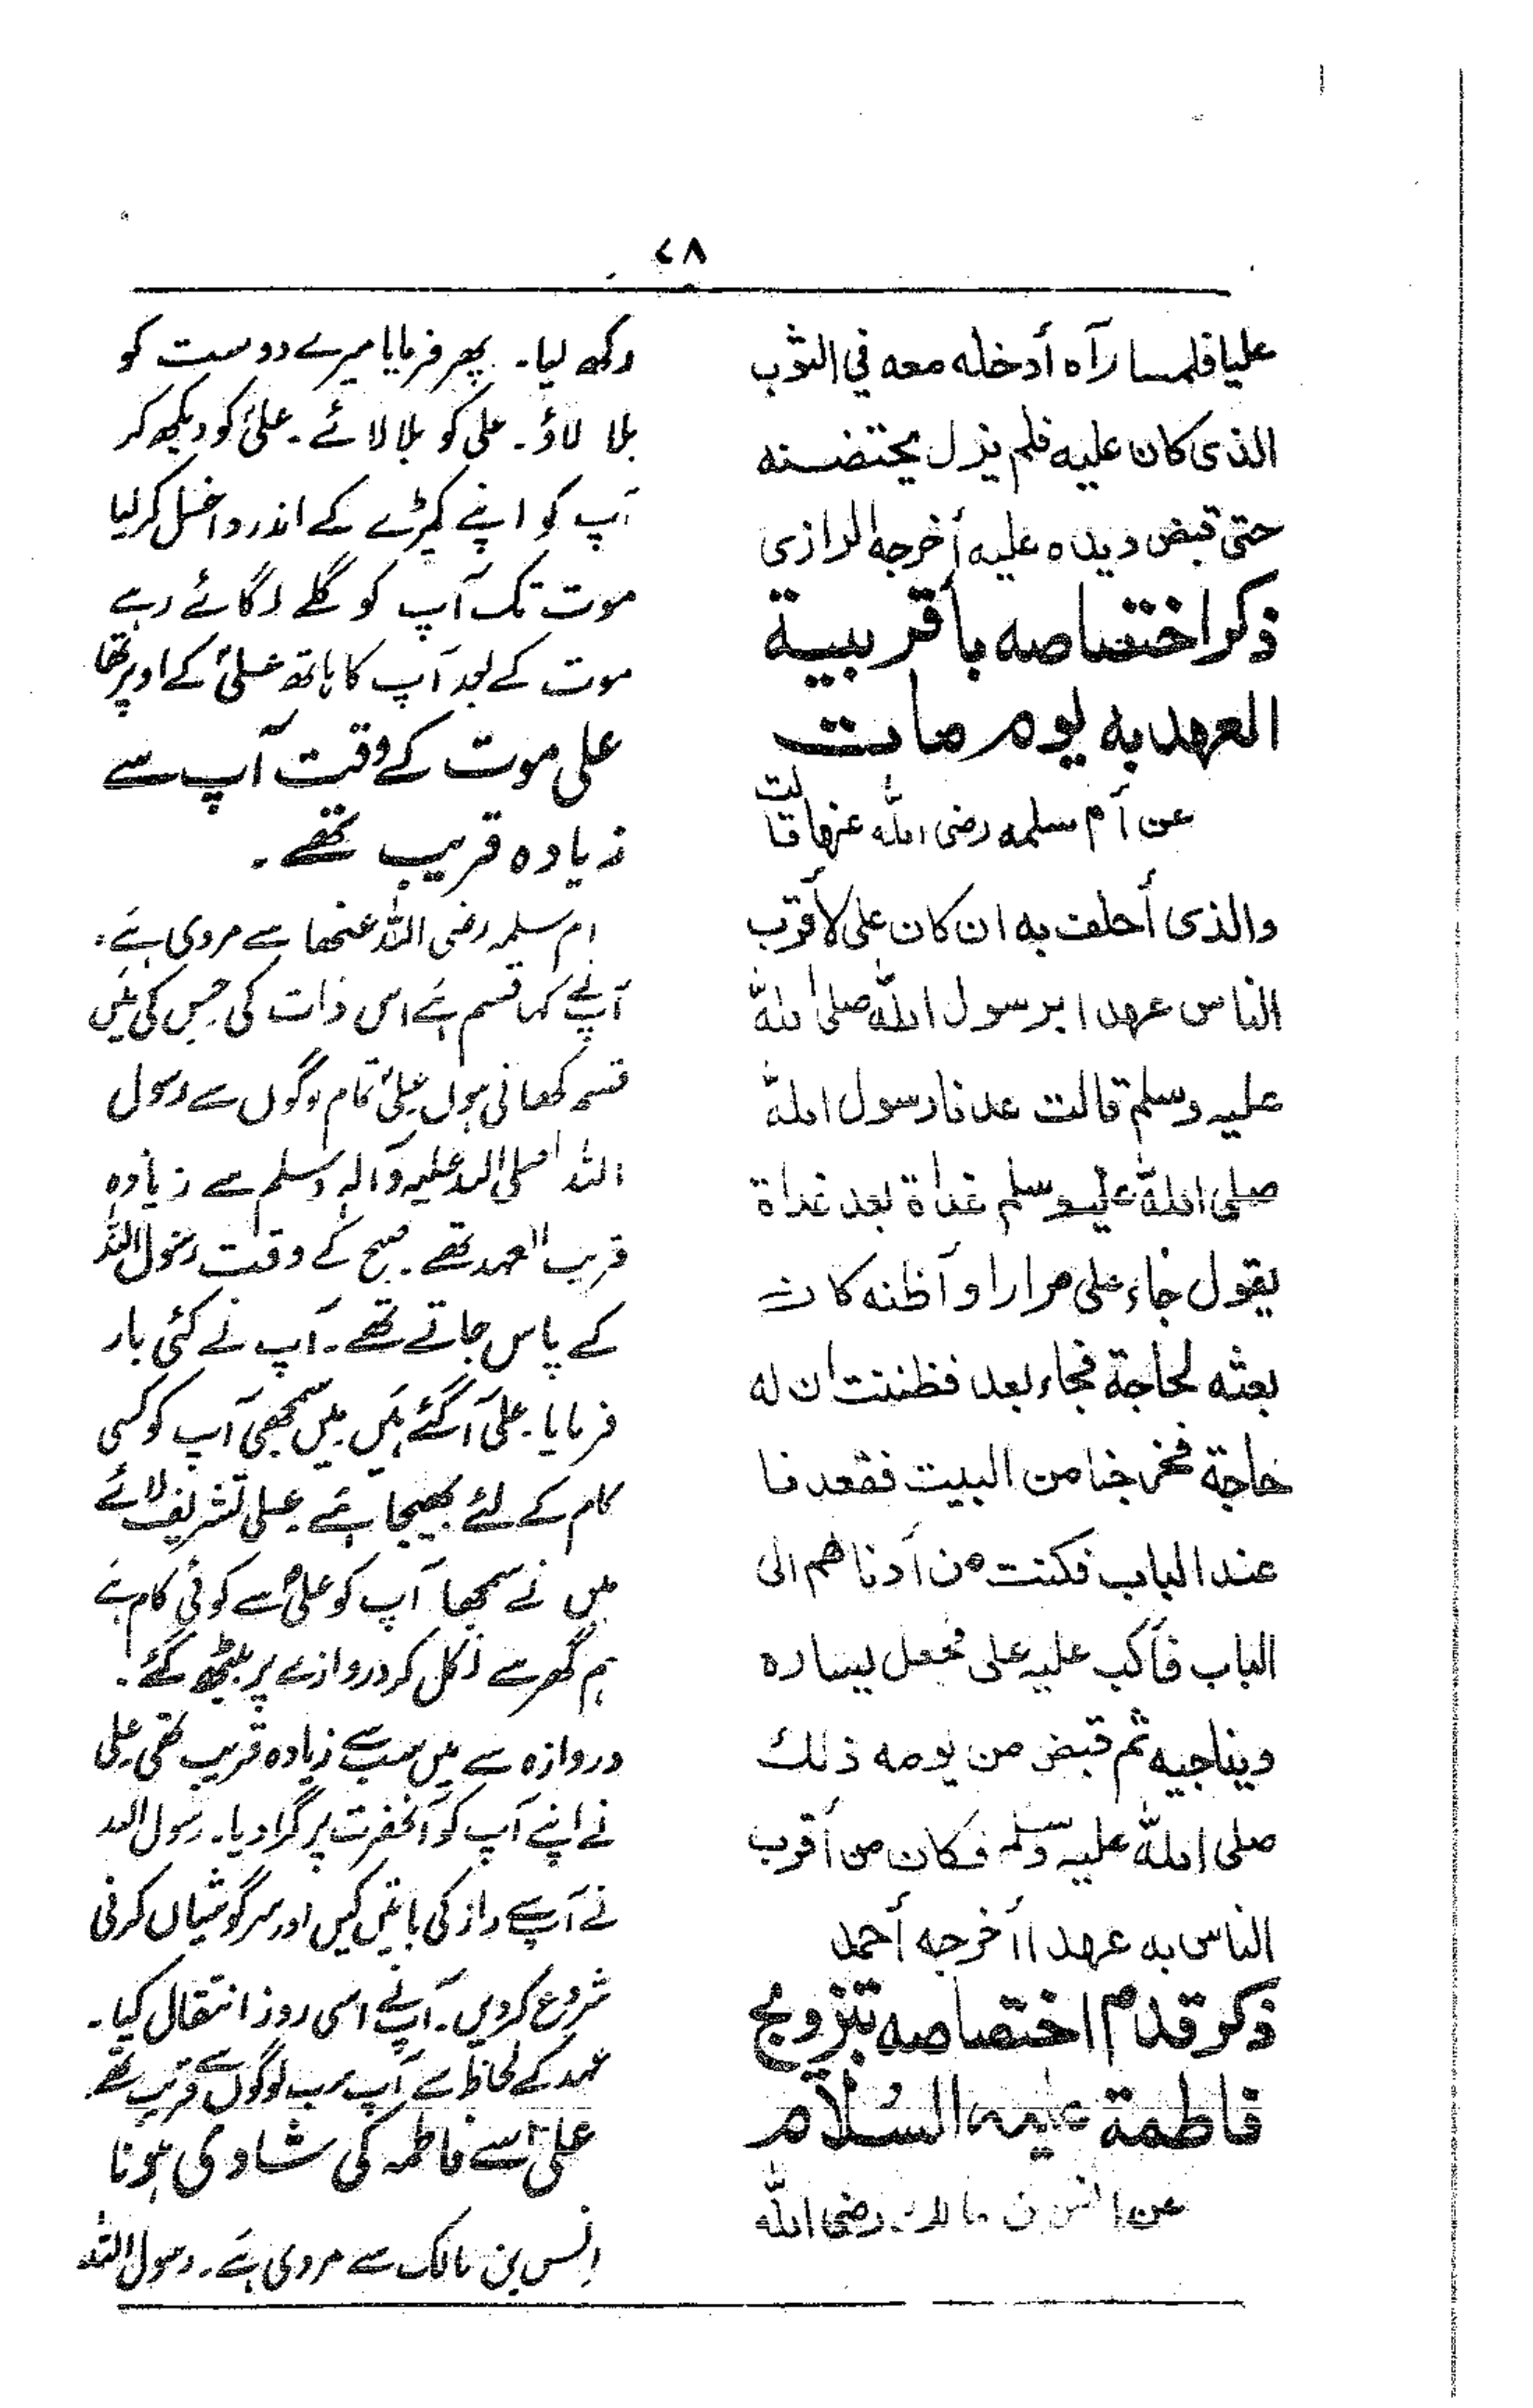 ۷۸
علیا فلمسا رآه أدخله معه في الثوب
الذی کان علیه فلم یزل یحتضنه
حتی قبض ویده علیه أخرجه الرازی
ذکر اختصاصه بأقربیة
العهد به یوم مات
عن أم سلمه رضی الله عنها قالت
والذی أحلف به ان کان علی لأقرب
الناس عهدا برسول الله صلی الله
علیه وسلم قالت عدنا رسول الله
صلی الله علیه وسلم غداة بعد غداة
یقول جاء علی مرارا وأظنه کان
بعثه لحاجة فجاء بعد فظننت ان له
حاجة فخرجنا من البیت فقعدنا
عند الباب فکنت من أدناهم الی
الباب فأکب علیه علی فجعل یساره
ویناجیه ثم قبض من یومه ذلک
صلی الله علیه وسلم فکان من أقرب
الناس به عهدا أخرجه أحمد
ذکر قدم اختصاصه بتزویج
فاطمة علیه السلام
عن انس بن مالک رضی الله
رکھ لیا۔ پھر فرمایا میرے دوست کو
بلا لاؤ۔ علی کو بلا لائے۔ علیؑ کو دیکھ کر
آپ کو اپنے کپڑے کے اندر داخل کر لیا
موت تک آپ کو گلے لگائے رہے
موت کے بعد آپ کا ہاتھ علیؑ کے اوپر تھا
علی موت کے وقت آپ سے
زیادہ قریب تھے۔
ام سلمہ رضی اللہ عنھا سے مروی ہے۔
آپنے کہا قسم ہے اس ذات کی جس کی میں
قسم کھاتی ہوں علیؑ تمام لوگوں سے رسول
اللہ صلی اللہ علیہ وآلہ وسلم سے زیادہ
قریب العہد تھے۔ صبح کے وقت رسول اللہ
کے پاس جاتے تھے۔ آپ نے کئی بار
فرمایا۔ علی آ گئے ہیں۔ میں سمجھی آپ کو کسی
کام کے لئے بھیجا ہے۔ علی تشریف لائے
میں نے سمجھا آپ کو علیؑ سے کوئی کام ہے
ہم گھر سے نکل کر دروازے پر بیٹھ گئے۔
دروازہ سے میں سب سے زیادہ قریب تھی۔ علی
نے اپنے آپ کو آنحضرت پر گرا دیا۔ رسول اللہ
نے آپ سے راز کی باتیں کیں اور سرگوشیاں کرنی
شروع کردیں۔ آپنے اسی روز انتقال کیا۔
عہد کے لحاظ سے آپ سب لوگوں سے قریب تھے۔
علیؑ سے فاطمہ کی شادی ہونا
انس بن مالک سے مروی ہے۔ رسول اللہ